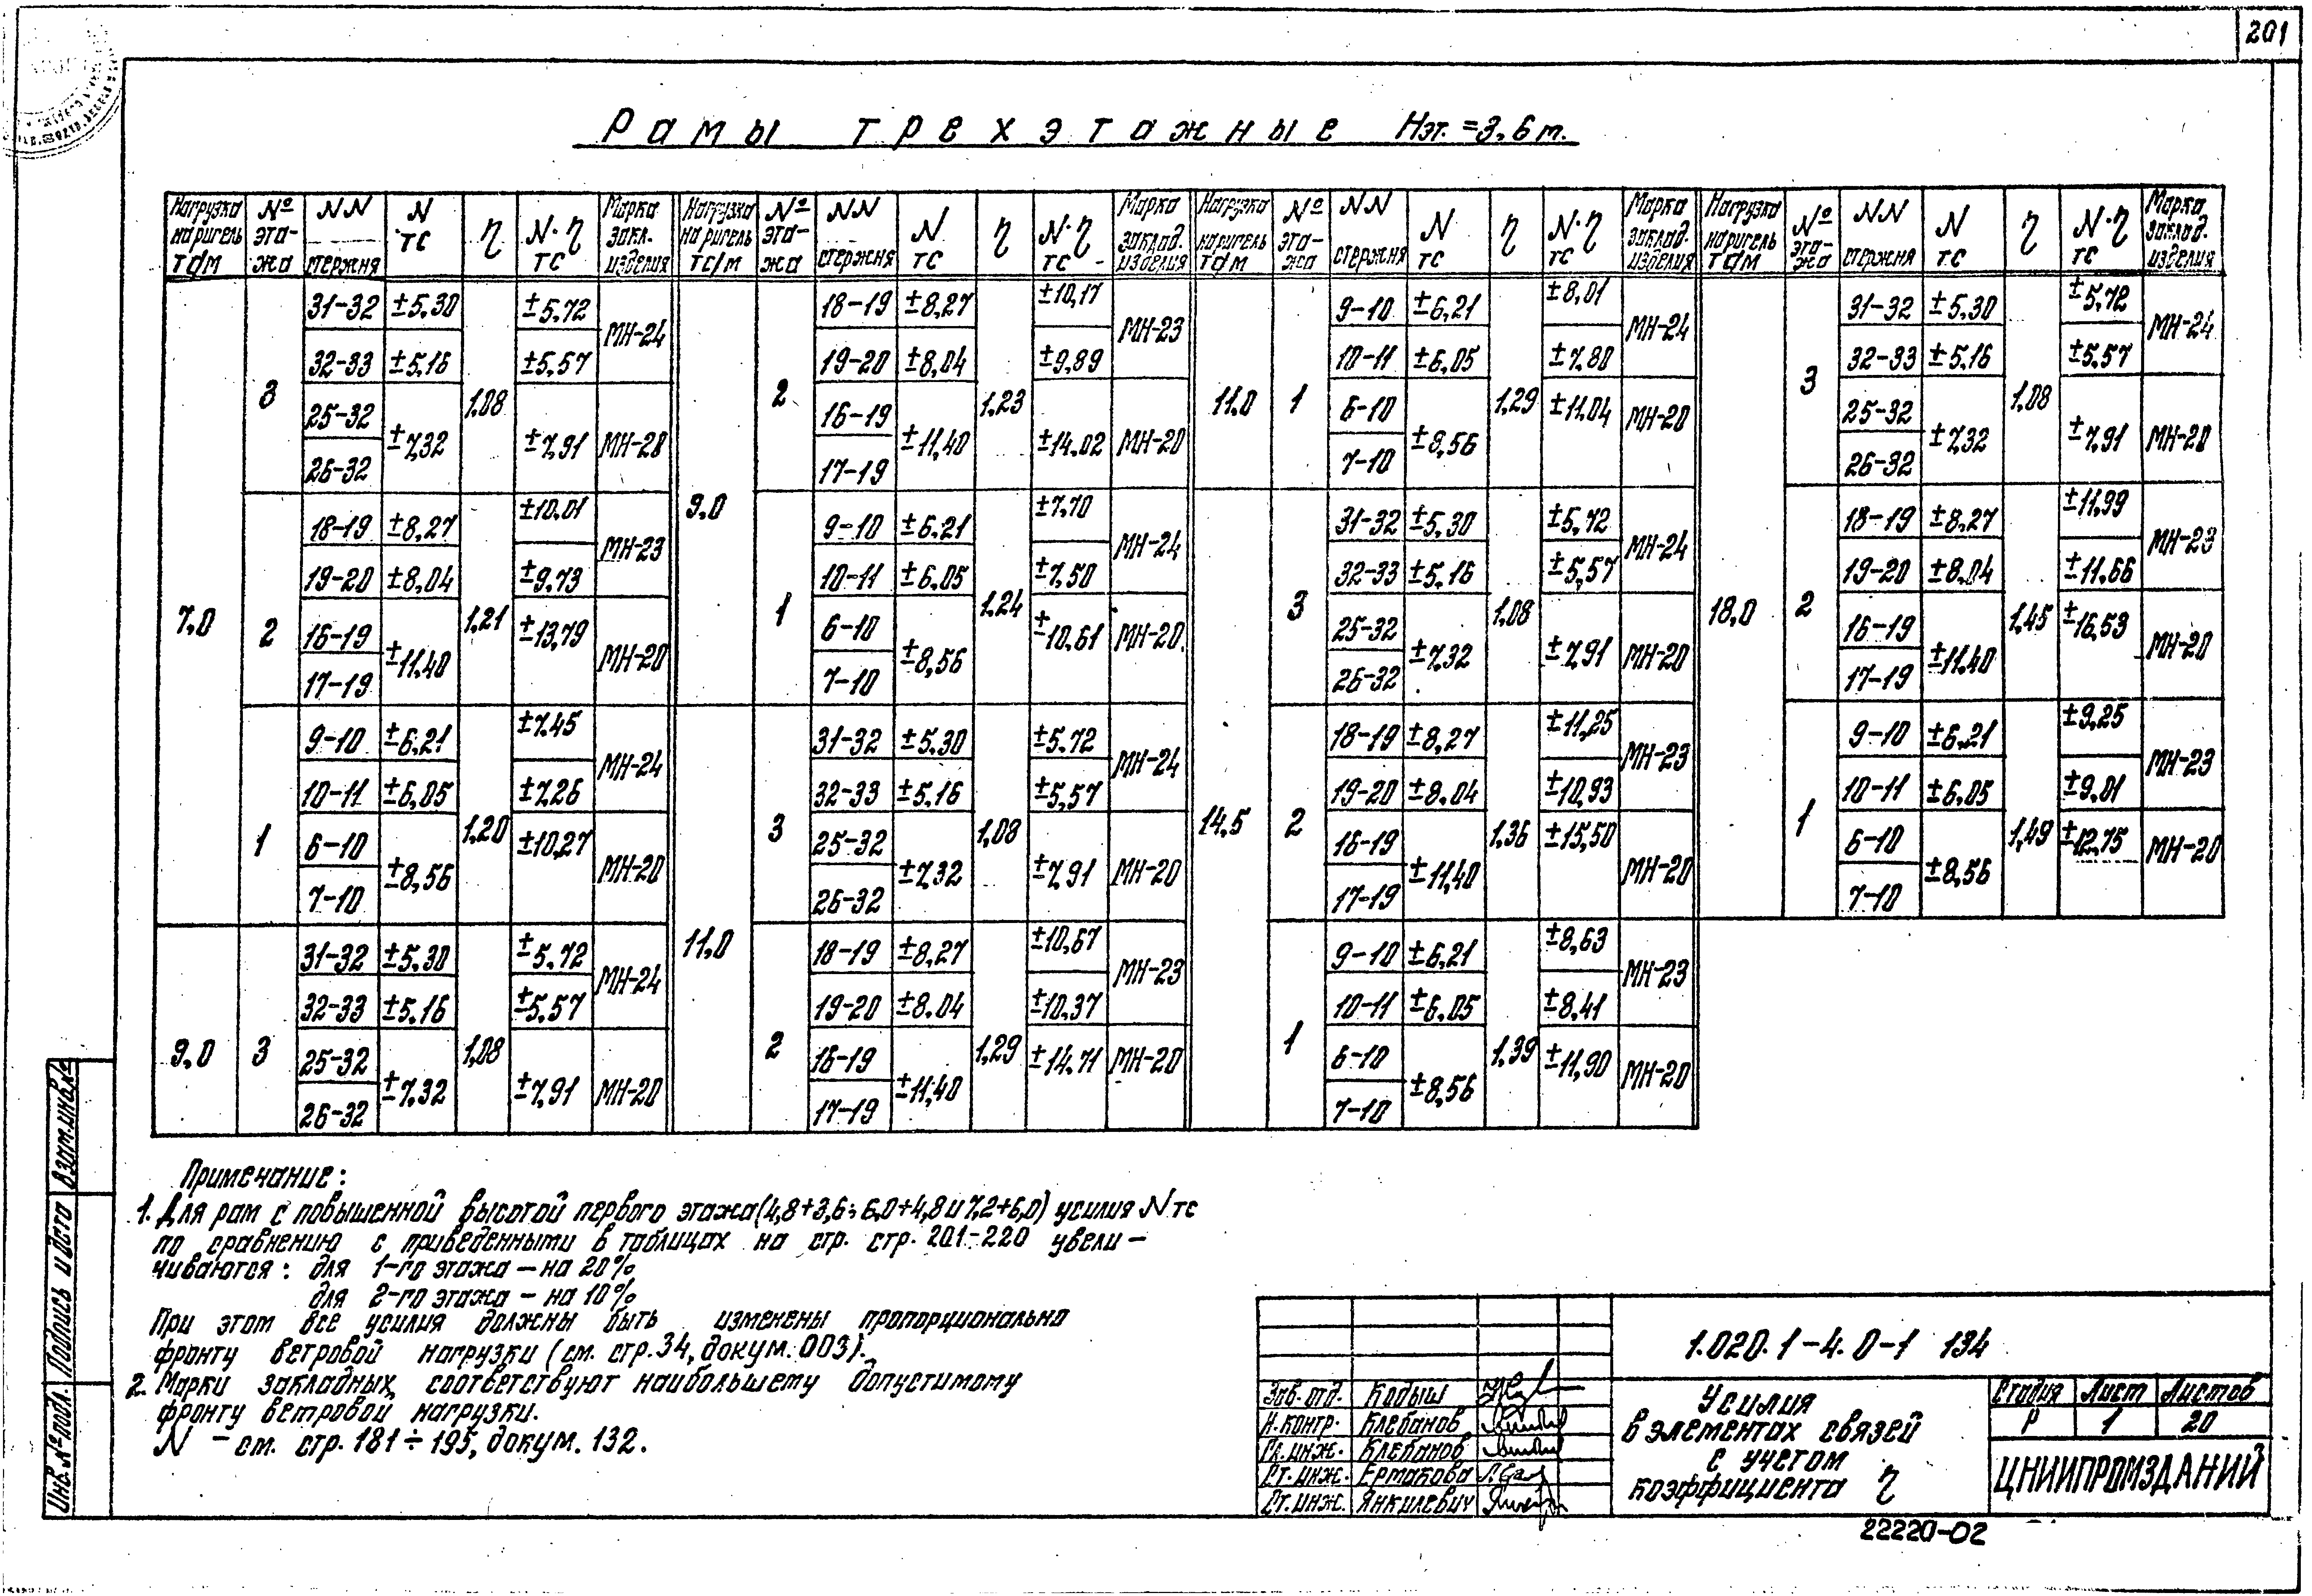 201
Рамы трехэтажные Нэт.=3,6 м.
Нагрузка на ригель тс/м | №№ этажа | NN стержня | N тс | η | N·η тс | Марка закл. изделия
7,0 | 3 | 31-32 | ±5,30 | 1,08 | ±5,72 | МН-24
32-33 | ±5,16 | ±5,57
25-32 | ±7,32 | ±7,91 | МН-28
26-32
2 | 18-19 | ±8,27 | 1,21 | ±10,01 | МН-23
19-20 | ±8,04 | ±9,73
16-19 | ±11,40 | ±13,79 | МН-20
17-19
1 | 9-10 | ±6,21 | 1,20 | ±7,45 | МН-24
10-11 | ±6,05 | ±7,26
6-10 | ±8,56 | ±10,27 | МН-20
7-10
9,0 | 3 | 31-32 | ±5,30 | 1,08 | ±5,72 | МН-24
32-33 | ±5,16 | ±5,57
25-32 | ±7,32 | ±7,91 | МН-20
26-32
Нагрузка на ригель тс/м | № этажа | NN стержня | N тс | η | N·η тс | Марка заклад. изделия
9,0 | 2 | 18-19 | ±8,27 | 1,23 | ±10,17 | МН-23
19-20 | ±8,04 | ±9,89
16-19 | ±11,40 | ±14,02 | МН-20
17-19
1 | 9-10 | ±6,21 | 1,24 | ±7,70 | МН-24
10-11 | ±6,05 | ±7,50
6-10 | ±8,56 | ±10,61 | МН-20
7-10
11,0 | 3 | 31-32 | ±5,30 | 1,08 | ±5,72 | МН-24
32-33 | ±5,16 | ±5,57
25-32 | ±7,32 | ±7,91 | МН-20
26-32
2 | 18-19 | ±8,27 | 1,29 | ±10,67 | МН-23
19-20 | ±8,04 | ±10,37
16-19 | ±11,40 | ±14,71 | МН-20
17-19
Нагрузка на ригель тс/м | № этажа | NN стержня | N тс | η | N·η тс | Марка заклад. изделия
11,0 | 1 | 9-10 | ±6,21 | 1,29 | ±8,01 | МН-24
10-11 | ±6,05 | ±7,80
6-10 | ±8,56 | ±11,04 | МН-20
7-10
14,5 | 3 | 31-32 | ±5,30 | 1,08 | ±5,72 | МН-24
32-33 | ±5,16 | ±5,57
25-32 | ±7,32 | ±7,91 | МН-20
26-32
2 | 18-19 | ±8,27 | 1,36 | ±11,25 | МН-23
19-20 | ±8,04 | ±10,93
16-19 | ±11,40 | ±15,50 | МН-20
17-19
1 | 9-10 | ±6,21 | 1,39 | ±8,63 | МН-23
10-11 | ±6,05 | ±8,41
6-10 | ±8,56 | ±11,90 | МН-20
7-10
Нагрузка на ригель тс/м | № этажа | NN стержня | N тс | η | N·η тс | Марка заклад. изделия
18,0 | 3 | 31-32 | ±5,30 | 1,08 | ±5,72 | МН-24
32-33 | ±5,16 | ±5,57
25-32 | ±7,32 | ±7,91 | МН-20
26-32
2 | 18-19 | ±8,27 | 1,45 | ±11,99 | МН-23
19-20 | ±8,04 | ±11,66
16-19 | ±11,40 | ±16,53 | МН-20
17-19
1 | 9-10 | ±6,21 | 1,49 | ±9,25 | МН-23
10-11 | ±6,05 | ±9,01
6-10 | ±8,56 | ±12,75 | МН-20
7-10
Примечание:
1. Для рам с повышенной высотой первого этажа (4,8+3,6; 6,0+4,8 и 7,2+6,0) усилия N тс
по сравнению с приведенными в таблицах на стр. стр. 201-220 увели-
чиваются: для 1-го этажа - на 20%
для 2-го этажа - на 10%
При этом все усилия должны быть изменены пропорционально
фронту ветровой нагрузки (см. стр. 34, докум. 003).
2. Марки закладных, соответствуют наибольшему допустимому
фронту ветровой нагрузки.
N - см. стр. 181÷195, докум. 132.
Инв. № подл. Подпись и дата Взам. инв. №
Зав. отд. Кодыш
Н. контр. Клебанов
Гл. инж. Клебанов
Ст. инж. Ермакова
Ст. инж. Янкилевич
1.020.1-4.0-1 134
Усилия
в элементах связей
с учетом
коэффициента η
Стадия Лист Листов
Р 1 20
ЦНИИПРОМЗДАНИЙ
22220-02